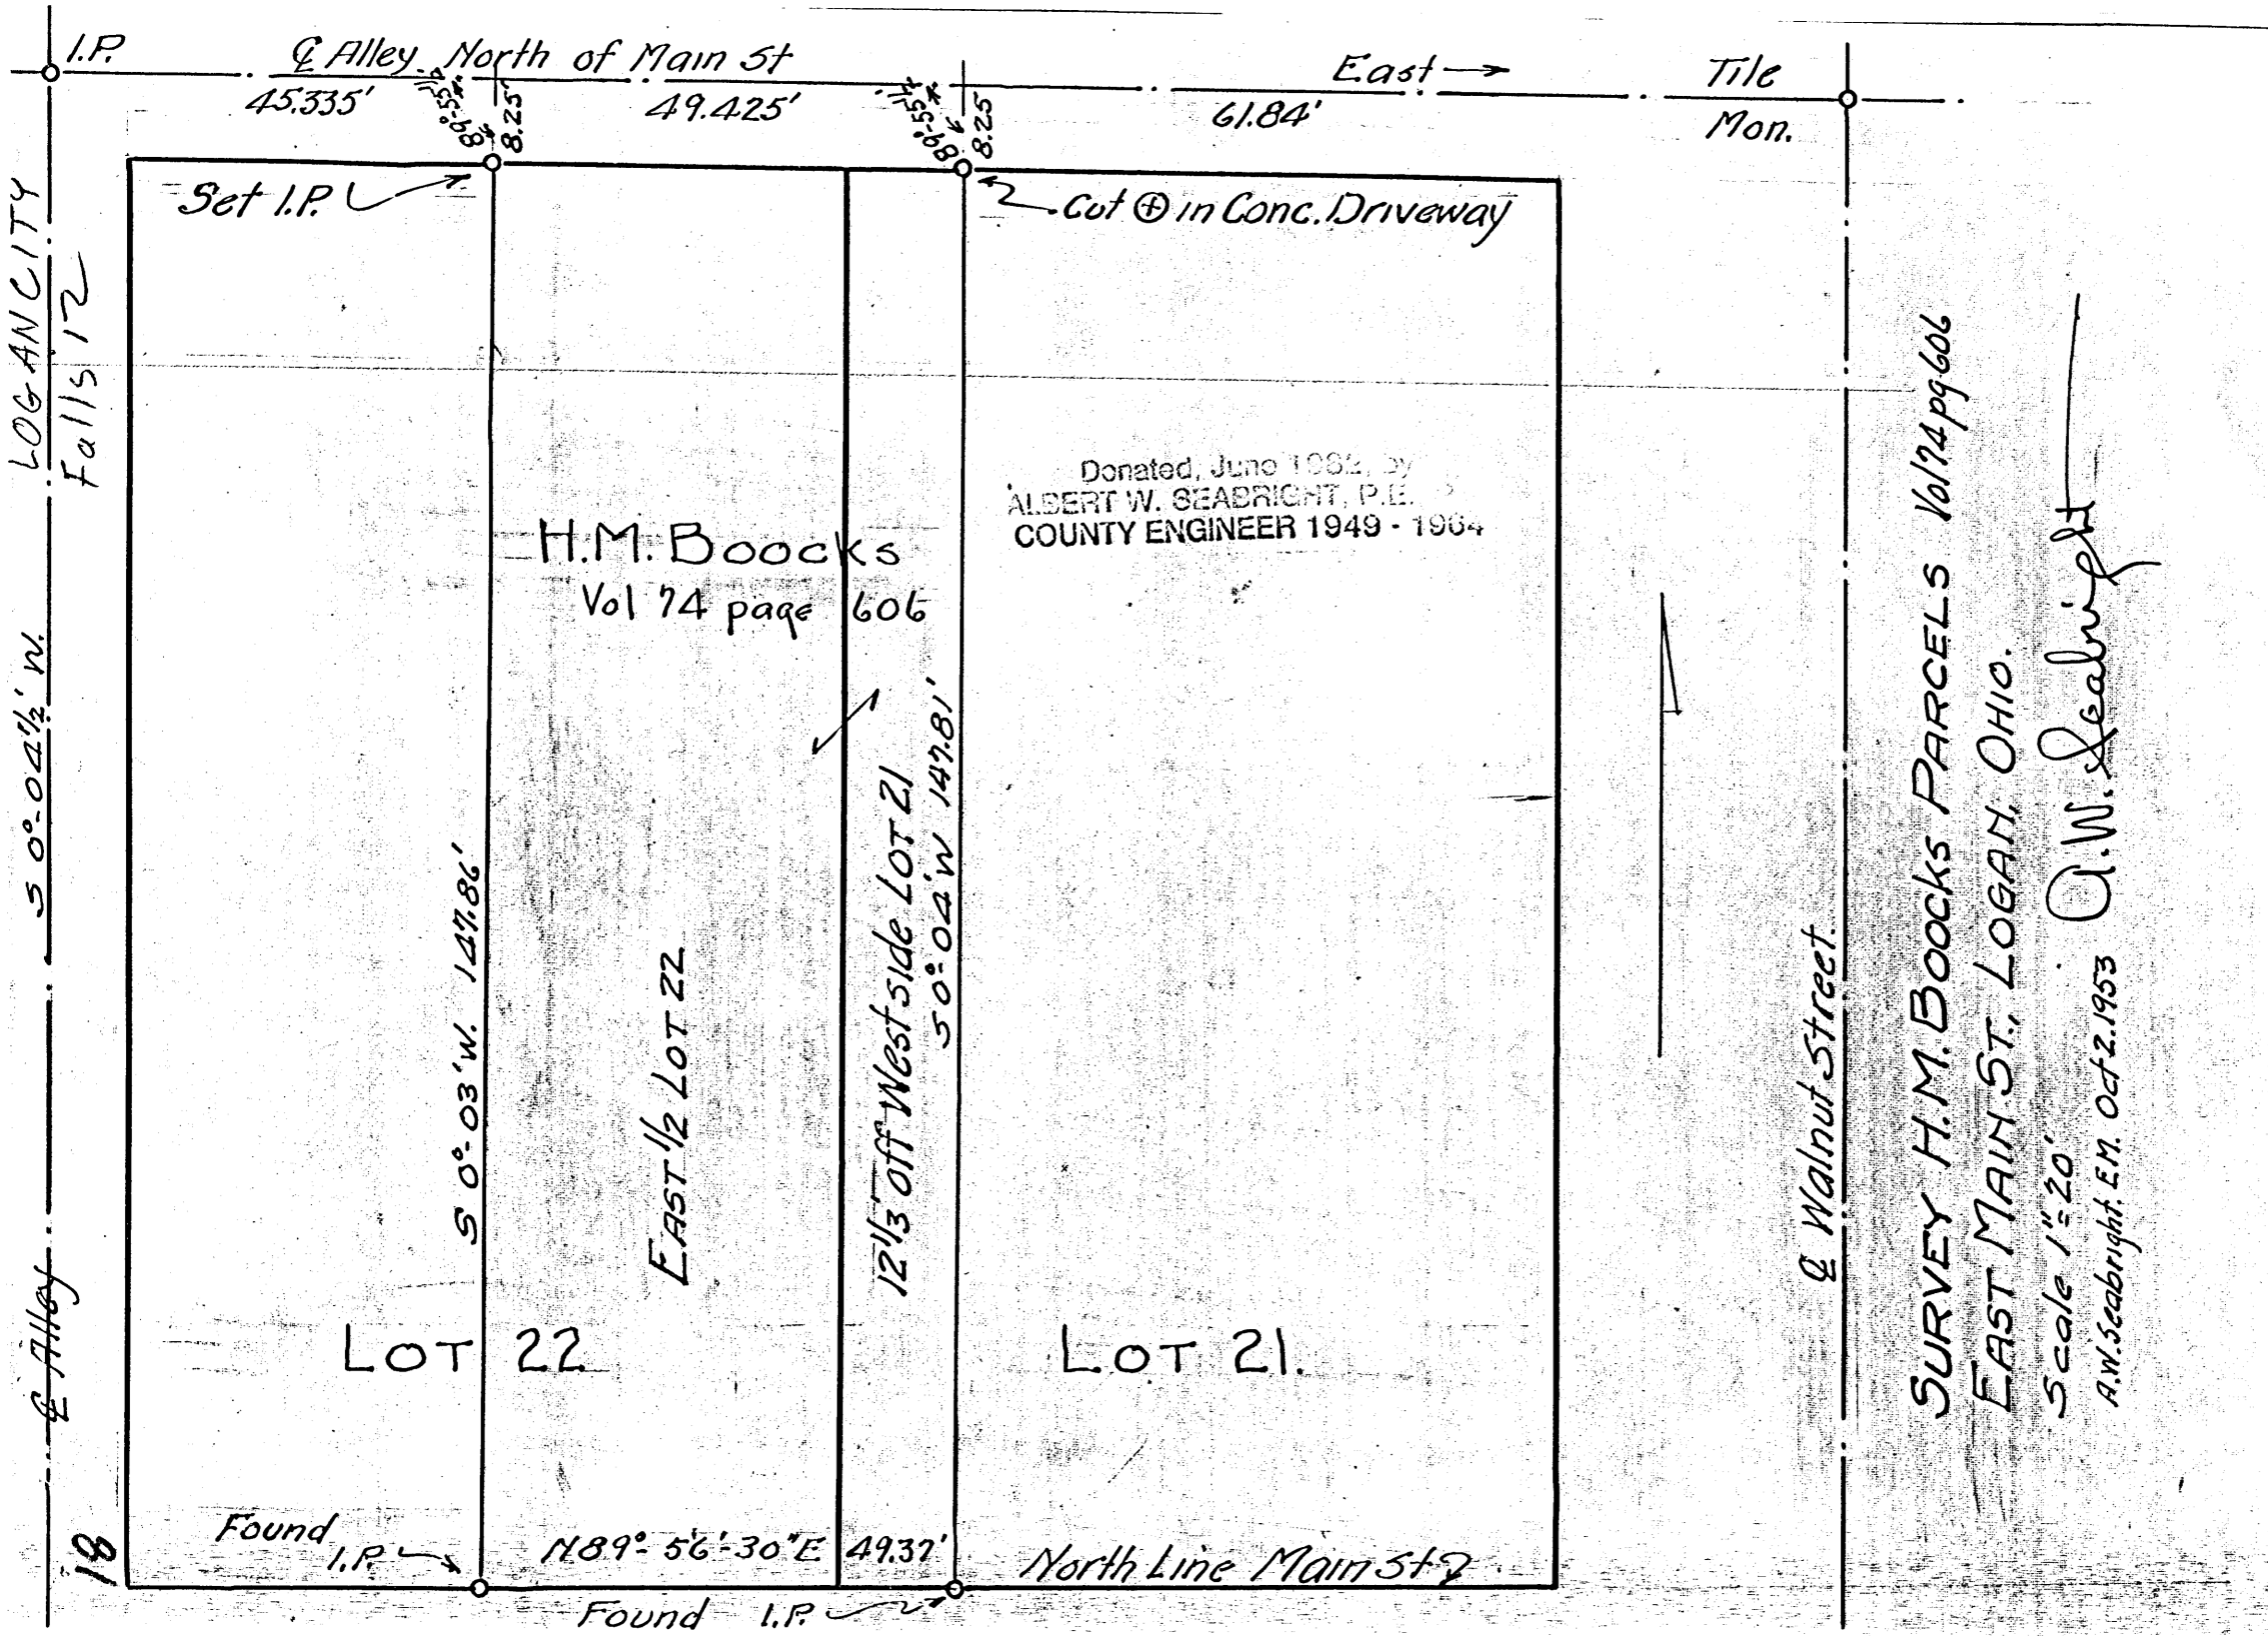 I.P.
℄ Alley North of Main St
East →
Tile
Mon.
45.335'
8.25'
49.425'
8.25
61.84'
Set I.P.
Cut ⊕ in Conc. Driveway
LOGAN CITY
Falls 12
S 0°-04½' W.
℄ Alley
18
Donated, June
ALBERT W. SEABRIGHT, P.E.
COUNTY ENGINEER 1949 - 1964
H.M. Boocks
Vol 74 page 606
S 0°-03' W. 147.86'
EAST ½ LOT 22
12⅓' off West side LOT 21
S 0°-04' W 147.81'
LOT 22
LOT 21.
Found
I.P.
N 89°-56'-30" E
49.37'
North Line Main St
Found I.P.
℄ Walnut Street
SURVEY H.M. BOOCKS PARCELS Vol 74 pg 606
EAST MAIN ST., LOGAN, OHIO.
Scale 1"=20'
A.W. Seabright
A.W. Seabright, E.M. Oct 2. 1953